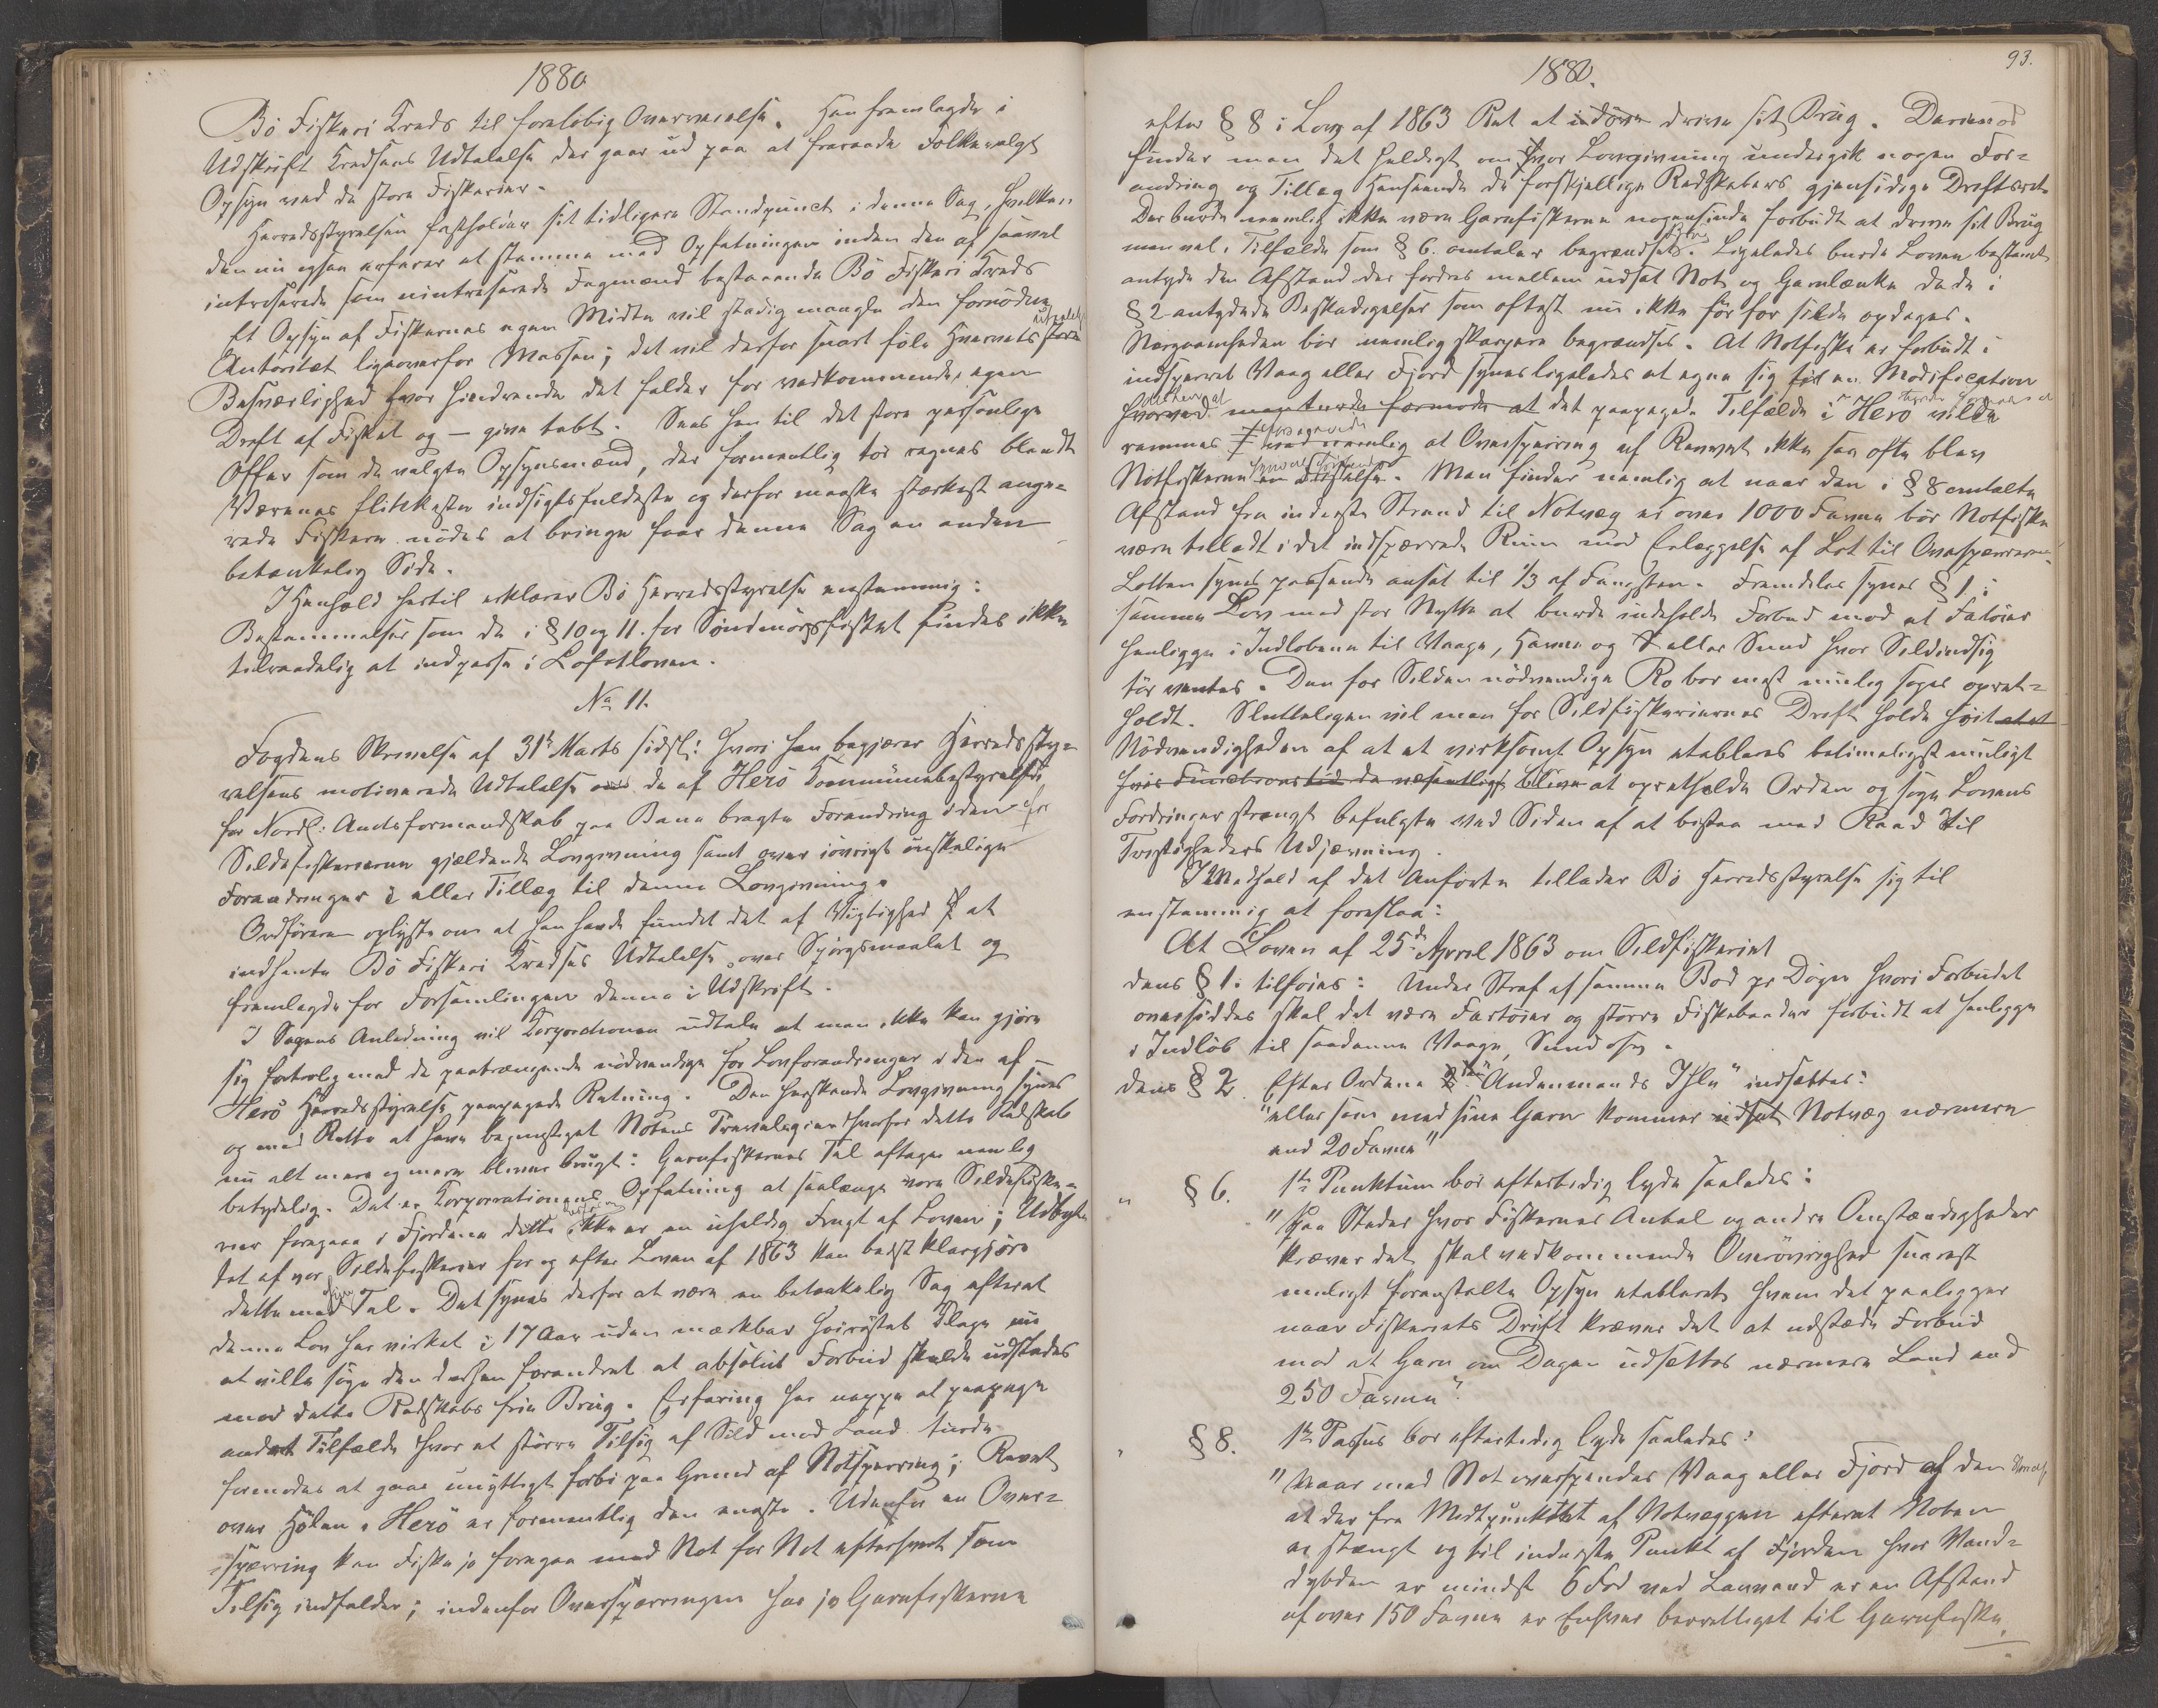 1880
Bö Fiskeri Kreds til foreløbig Overveielse. Han fremlagde i
Udskrift Kredsens Udtalelse der gaar ud paa at fraraade Folkevalgt
Opsyn ved de store Fiskerier.
Herredsstyrelsen fastholder sit tidligere Standpunct i denne Sag, hvilken
den nu ogsaa erfarer at stemme med Opfatningen inden den af saavel
intreserede som uintreserede Fagmænd bestaaende Bö Fiskeri Kreds
Et Opsyn af Fiskernes egen Midte vil stadig mangle den fornödne
Autoritet ligeoverfor Massen; det vil derfor snart föle Hvervets store
Besværlighed hvor hindrende det falder for vedkommendes egen
Drift af Fisket og – give tabt. Sees hen til det store personlige
Offer som de valgte Opsynsmænd, der formentlig tör regnes blandt
Værenes flinkeste indsigtsfuldeste og derfor maaske stærkest ange-
rede Fiskere nödes at bringe faar denne Sag en anden
betænkelig Side.
I Henhold hertil erklærer Bö Herredsstyrelse enstemmig:
Bestemmelser som de i § 10 og 11. for Söndmörsfisket findes ikke
tilraadelig at indpasse i Lofotloven.
No 11.
Fogdens Skrivelse af 31te Marts sidstl: hvori han begjærer Herredssty-
relsens motiverede Udtalelse over de af Herö Kommunebestyrelse
for Nordl: Amtsformandskab paa Bane bragte Forandring i den for
Sildefiskerierne gjældende Lovgivning samt over iövrigt önskelige
Forandringer i eller Tillæg til denne Lovgivning.
Ordföreren oplyste om at han havde fundet det af Vigtighed at
indhente Bö Fiskeri Kredses Udtalelse over Spörgsmaalet og
fremlagde for Forsamlingen denne i Udskrift.
I Sagens Anledning vil Korporationen udtale at man ikke kan gjöre
sig fortrolig med de paatrængende nödvendige for Lovforandringer i den af
Herö Herredsstyrelse paapegede Retning. Den herskende Lovgivning synes
og med Rette at have begunstiget Notens Prevalegier hvorfor dette Redskab
nu alt mere og mere bliver brugt: Garnfiskernes Tal aftager nemlig
betydelig. Det er Korporationens Opfatning at saalænge vore Sildefiske-
rier foregaa i Fjordene dette ikke er en uheldig Frugt af Loven; Udbyt-
tet af vor Sildefiskerier for og efter Loven af 1863 kan bedst klargjöre
dette med Tal. Det synes derfor at være en betænkelig Sag efterat
denne Lov har virket i 17 Aar uden mærkbar höirøstet Klage nu
at ville söge den derhen forandret at absolut Forbud skulde udstedes
mod dette Redskabs frie Brug. Erfaring har neppe at paapege
andet Tilfælde hvor et större Tilsig af Sild mod Land turde
formodes at gaae unyttigt forbi paa Grund af Notsperring; Ravnet
over Hölen i Herö er formentlig den eneste. Udenfor en Over-
spærring kan Fiske jo foregaa med Not for Not eftersom som
Tilsig indfalder; indenfor Overspærringen har jo Garnfiskerne
1880.
93.
efter § 8 i Lov af 1863 Ret at udöve drive sit Brug. Derimod
finder man det heldigt om hvor Lovgivning undergik nogen For-
andring og Tillæg Henseende de forskjellige Redskabers gjensidige Driftsret.
Der burde nemlig ikke være Garnfiskerne nogensinde forbudt at drive sit Brug
men vel i Tilfælde som § 6. omtaler begrændset. Ligeledes burde Loven bestemt
antyde den Afstand der fordres mellem udsat Not og Garnlænke da de i
§ 2 antydede Beskadigelser som oftest nu ikke för for silde opdages.
Nærgaaenheden bör nemlig skarpere begrændses. At Notfiske er forbudt i
indsperret Vaag eller Fjord synes ligeledes at egne sig til en Modification
hvorved man turde formode at det paapegede Tilfælde i Herö vilde
rammes nemlig at Oversperring af Ravnet ikke saa ofte blev
Notfiskerne en Fristelse. Man finder nemlig at naar den i § 8 omtalte
Afstand fra inderste Strand til Notvæg er over 1000 Favne bör Notfiske
være tilladt i det indspærrede Rum mod Erlæggelse af Lot til Overspærrerne.
Lotten synes passende ansat til 1/3 af Fangsten. Fremdeles synes § 1 i
samme Lov med stor Nytte at burde indeholde Forbud mod at Fatöier
henligge i Indlöbene til Vaage, Havne og eller Sund hvor Sildindsig
tör ventes. Den for Silden nödvendige Ro bör mest mulig söges opret-
holdt. Sluttelig vil man for Sildfiskeriernes Drift holde höit
Nödvendigheden af at et virksomt Opsyn etableres betimeligst muligt
hvis Functionstid da væsentligst bliver at opretholde Orden og söge Lovens
Fordringer strengt befulgte ved Siden af at bistaa med Raad til
Tvistigheders Udjævning.
I Medhold af det Anförte tillader Bö Herredsstyrelse sig til
enstemmig at foreslaa:
At Loven af 25de April 1863 om Sildfiskeriet
dens § 1. tilföies: Under Straf af samme Bod pr Dögn hvori Forbudet
oversiddes skal det være Fartöier og större Fiskebaader forbudt at henligge
i Indlöb til saadanne Vaage, Sund osv.
dens § 2. Efter Ordene "Andenmands Ihle" indsættes:
"eller som med sine Garn kommer udsat Notvæg nærmere
end 20 Favne"
" § 6. 1te Punktum bör eftertidig lyde saaledes:
"Paa Steder hvor Fiskernes Antal og andre Omstændigheder
kræver det, skal vedkommende Överövrighed snarest
muligt foranstalte Opsyn etableret hvem det paaligger
naar Fiskeriets Drift kræver det at udstæde Forbud
mod at Garn om Dagen udsættes nærmere Land end
250 Favne".
" § 8. 1te Passus bör eftertidig lyde saaledes:
"Naar med Not overspændes Vaag eller Fjord af den
at der fra Midtpunktet af Notvæggen efterat Noten
er stængt og til inderste Punkt af Fjorden hvor Vand-
dybden er mindst 6 Fod ved Lavvand er en Afstand
af over 150 Favne er Enhver berettiget til Garnfiske,